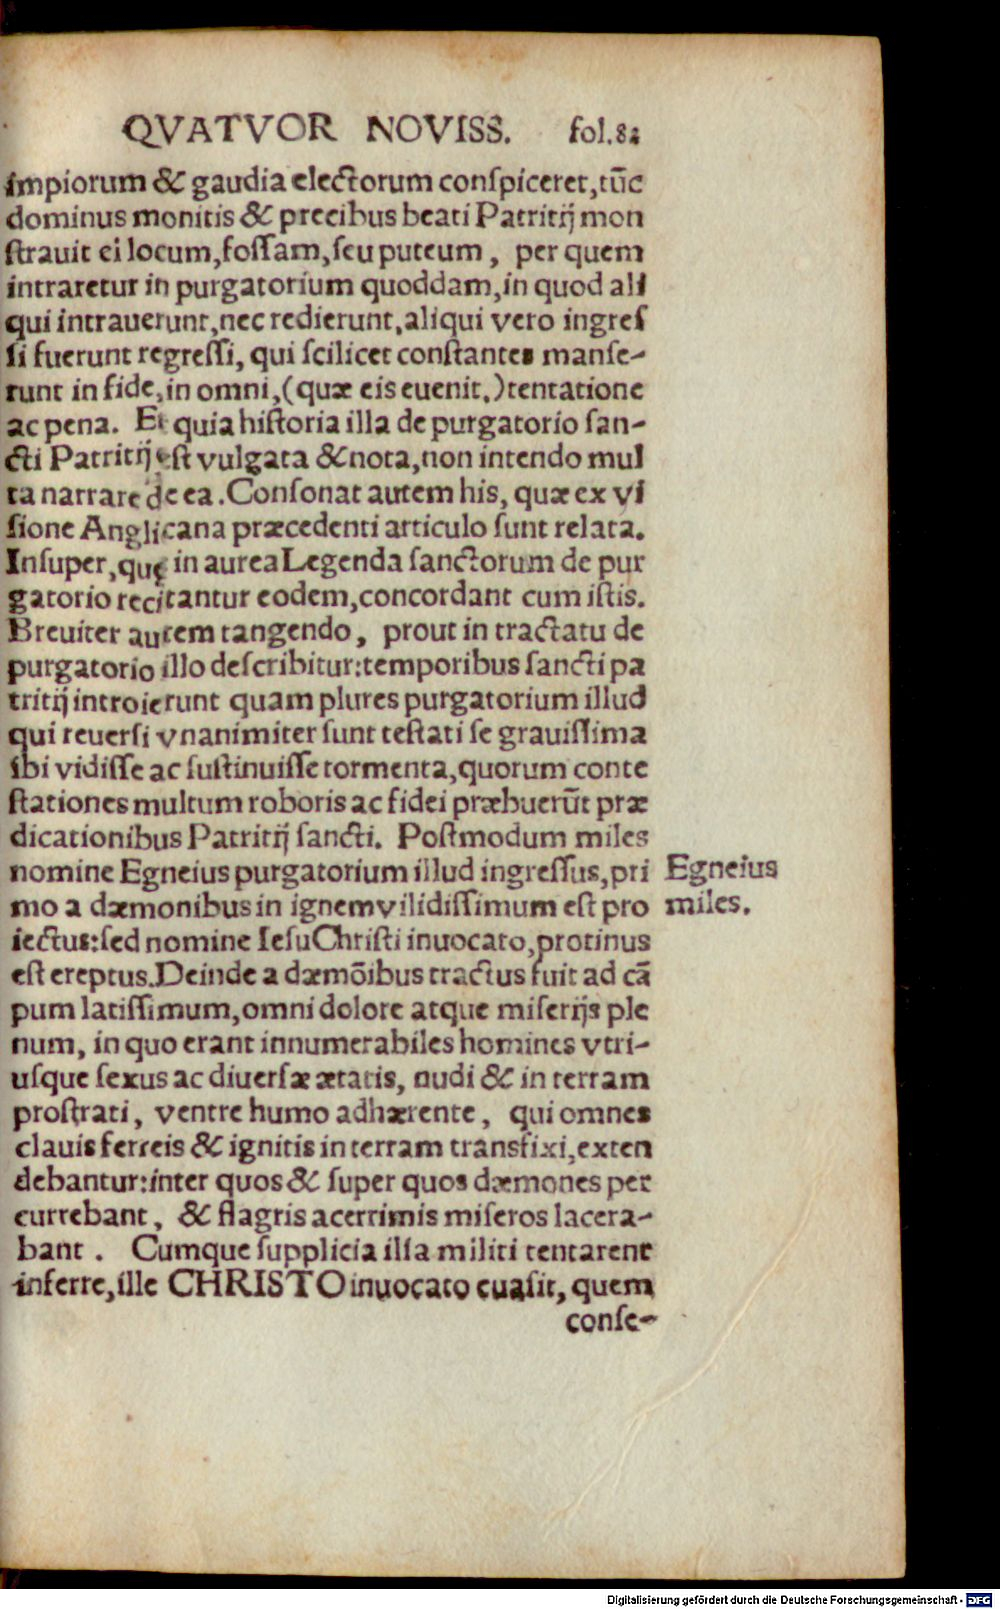 QVATVOR NOVISS. fol.82
impiorum & gaudia electorum conspiceret, tūc
dominus monitis & precibus beati Patritij mon
strauit ei locum, fossam, seu puteum, per quem
intraretur in purgatorium quoddam, in quod ali
qui intrauerunt, nec redierunt, aliqui vero ingres
si fuerunt regressi, qui scilicet constantes manse-
runt in fide, in omni, (quæ eis euenit,) tentatione
ac pena. Et quia historia illa de purgatorio san-
cti Patritij est vulgata & nota, non intendo mul
ta narrare de ea. Consonat autem his, quæ ex vi
sione Anglicana præcedenti articulo sunt relata.
Insuper, quę in aurea Legenda sanctorum de pur
gatorio recitantur eodem, concordant cum istis.
Breuiter autem tangendo, prout in tractatu de
purgatorio illo describitur: temporibus sancti pa
tritij introierunt quam plures purgatorium illud
qui reuersi vnanimiter sunt testati se grauissima
ibi vidisse ac sustinuisse tormenta, quorum conte
stationes multum roboris ac fidei præbuerūt præ
dicationibus Patritij sancti. Postmodum miles
nomine Egneius purgatorium illud ingressus, pri
mo a dæmonibus in ignem vilidissimum est pro
iectus: sed nomine Iesu Christi inuocato, protinus
est ereptus. Deinde a dæmōibus tractus fuit ad cā
pum latissimum, omni dolore atque miserijs ple
num, in quo erant innumerabiles homines vtri-
usque sexus ac diuersæ ætatis, nudi & in terram
prostrati, ventre humo adhærente, qui omnes
clauis ferreis & ignitis in terram transfixi, exten
debantur: inter quos & super quos dæmones per
currebant, & flagris acerrimis miseros lacera-
bant. Cumque supplicia illa militi tentarent
inferre, ille CHRISTO inuocato euasit, quem
conse-
Egneius
miles.
Digitalisierung gefördert durch die Deutsche Forschungsgemeinschaft - DFG